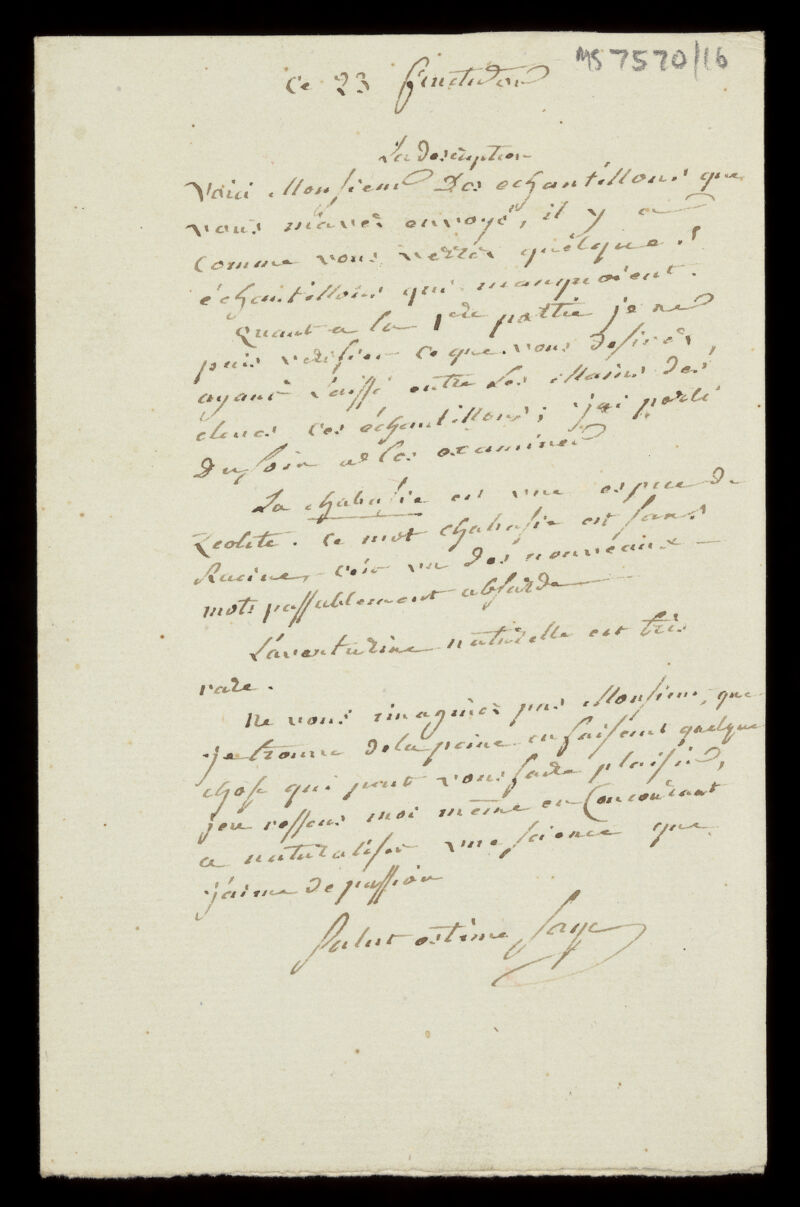 MS 7570/16
ce 23 fructidor
La description
Voici Monsieur Des echantillons que
vous m'aves envoyé, il y a
comme vous verrés quelque s
échantillons qui manquoient.
quant a la 1ere partie je ne
puis verifier ce que vous desirés,
ayant laissé entre Les Mains des
eleves ces échantillons; j'ai perdu
Du soin de les examiner
La chabasie est une espece de
Zeolite. ce mot chabasie est sans
Racine, c'est un des nouveaux
mots passablement absurde
L'aventurine naturelle est très
rare.
Ne vous imaginés pas Monsieur, que
je trouve de la peine en faisant quelque
chose qui peut vous faire plaisir,
j'en ressens moi même en Concourant
a naturaliser une science que
j'aime de passion
Salut estime Sage